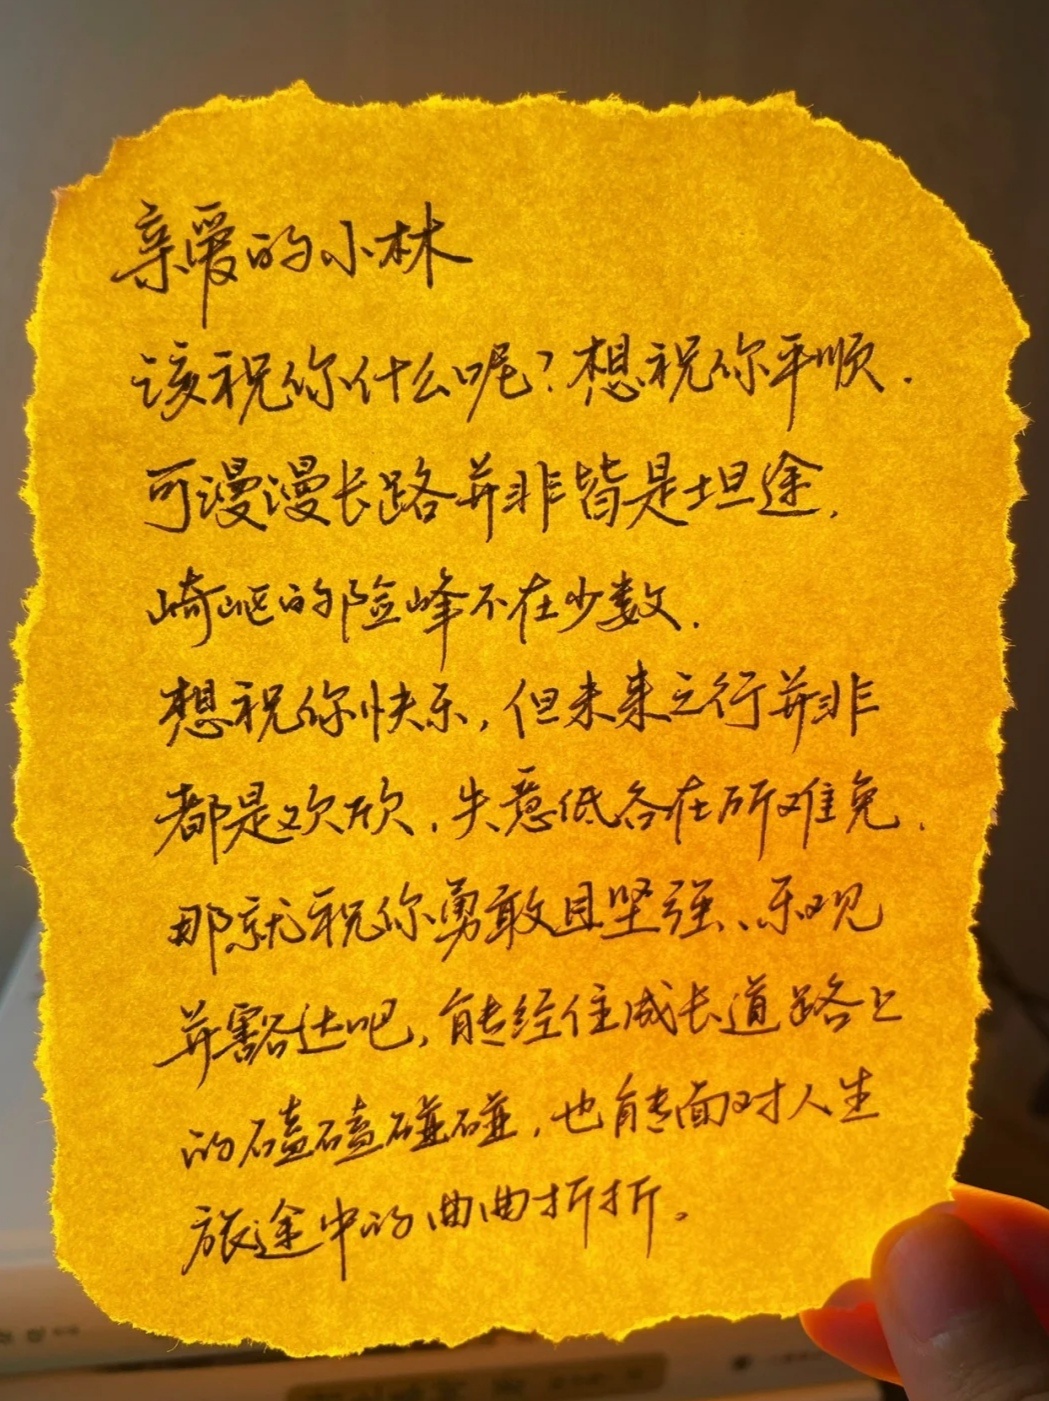 亲爱的小林
该祝你什么呢？想祝你平顺.
可漫漫长路并非皆是坦途.
崎岖的险峰不在少数.
想祝你快乐,但未来之行并非
都是欢欣.失意低谷在所难免.
那就祝你勇敢且坚强、乐观
并豁达吧,能经住成长道路上
的磕磕碰碰,也能面对人生
旅途中的曲曲折折。